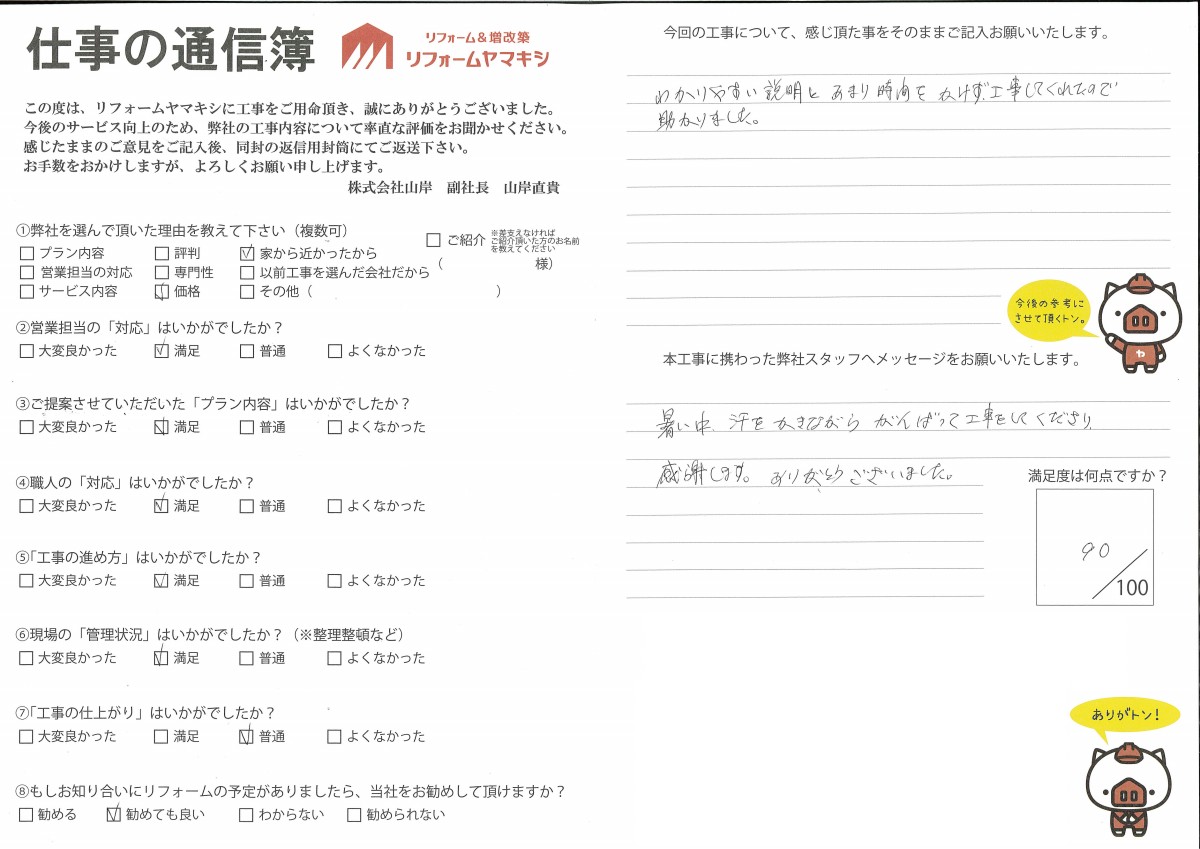 仕事の通信簿
リフォーム&増改築
リフォームヤマキシ
この度は、リフォームヤマキシに工事をご用命頂き、誠にありがとうございました。
今後のサービス向上のため、弊社の工事内容について率直な評価をお聞かせください。
感じたままのご意見をご記入後、同封の返信用封筒にてご返送下さい。
お手数をおかけしますが、よろしくお願い申し上げます。
株式会社山岸 副社長 山岸直貴
①弊社を選んで頂いた理由を教えて下さい(複数可)
□ プラン内容 □ 評判 ☑ 家から近かったから
□ 営業担当の対応 □ 専門性 □ 以前工事を選んだ会社だから
□ サービス内容 ☑ 価格 □ その他( )
□ ご紹介 ※差支えなければ
ご紹介頂いた方のお名前
を教えてください
( 様)
②営業担当の「対応」はいかがでしたか?
□ 大変良かった ☑ 満足 □ 普通 □ よくなかった
③ご提案させていただいた「プラン内容」はいかがでしたか?
□ 大変良かった ☑ 満足 □ 普通 □ よくなかった
④職人の「対応」はいかがでしたか?
□ 大変良かった ☑ 満足 □ 普通 □ よくなかった
⑤「工事の進め方」はいかがでしたか?
□ 大変良かった ☑ 満足 □ 普通 □ よくなかった
⑥現場の「管理状況」はいかがでしたか?(※整理整頓など)
□ 大変良かった ☑ 満足 □ 普通 □ よくなかった
⑦「工事の仕上がり」はいかがでしたか?
□ 大変良かった □ 満足 ☑ 普通 □ よくなかった
⑧もしお知り合いにリフォームの予定がありましたら、当社をお勧めして頂けますか?
□ 勧める ☑ 勧めても良い □ わからない □ 勧められない
今回の工事について、感じ頂た事をそのままご記入お願いいたします。
わかりやすい説明と あまり時間をかけず工事してくれたので
助かりました。
今後の参考に
させて頂くトン。
ヤ
本工事に携わった弊社スタッフへメッセージをお願いいたします。
暑い中、汗をかきながら がんばって工事をしてくださり
感謝します。ありがとうございました。
満足度は何点ですか?
90
/100
ありがトン!